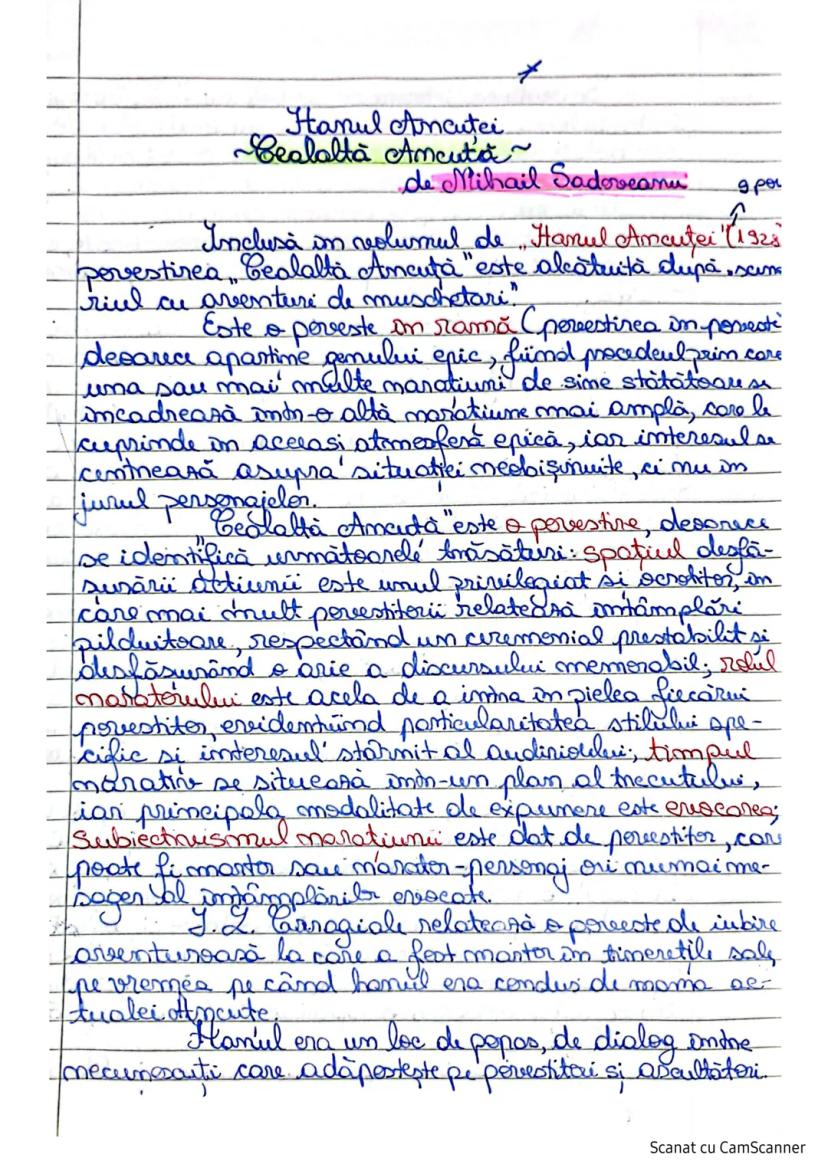 Hanul Ancuței
~Cealaltă Ancuță~
de Mihail Sadoveanu
9 pov
Inclusă în volumul de „Hanul Ancuței" (1928
povestirea „Cealaltă Ancuță" este alcătuită după „scena
riul cu aventuri de muschetari."
Este o poveste în ramă (povestirea în poveste
deoarece aparține genului epic, fiind procedeul prin care
una sau mai multe narațiuni de sine stătătoare se
încadrează într-o altă narațiune mai amplă, care le
cuprinde în aceeasi atmosferă epică, iar interesul se
centrează asupra situației neobișnuite, ci nu în
jurul personajelor.
„Cealaltă Ancuță" este o povestire, deoarece
se identifică următoarele trăsături: spațiul desfă-
șurării acțiunii este unul privilegiat și ocrotitor, în
care mai mult povestitorii relatează întâmplări
pilduitoare, respectând un ceremonial prestabilit și
desfășurând o arie a discursului memorabil; rolul
naratorului este acela de a intra în pielea fiecărui
povestitor, evidențiind particularitatea stilului spe-
cific și interesul stârnit al audiriolului; timpul
narativ se situează într-un plan al trecutului,
iar principala modalitate de expunere este evocarea;
subiectivismul narațiunii este dat de povestitor, care
poate fi martor sau narator-personaj ori numai me-
sager al întâmplărilor evocate.
I. L. Carragiale relatează o poveste de iubire
aventuroasă la care a fost martor în tinerețile sale,
pe vremea pe când hanul era condus de mama ac-
tualei Ancuțe.
Hanul era un loc de popas, de dialog între
necunoscuți care adăpostește pe povestitori și ascultători.
Scanat cu CamScanner